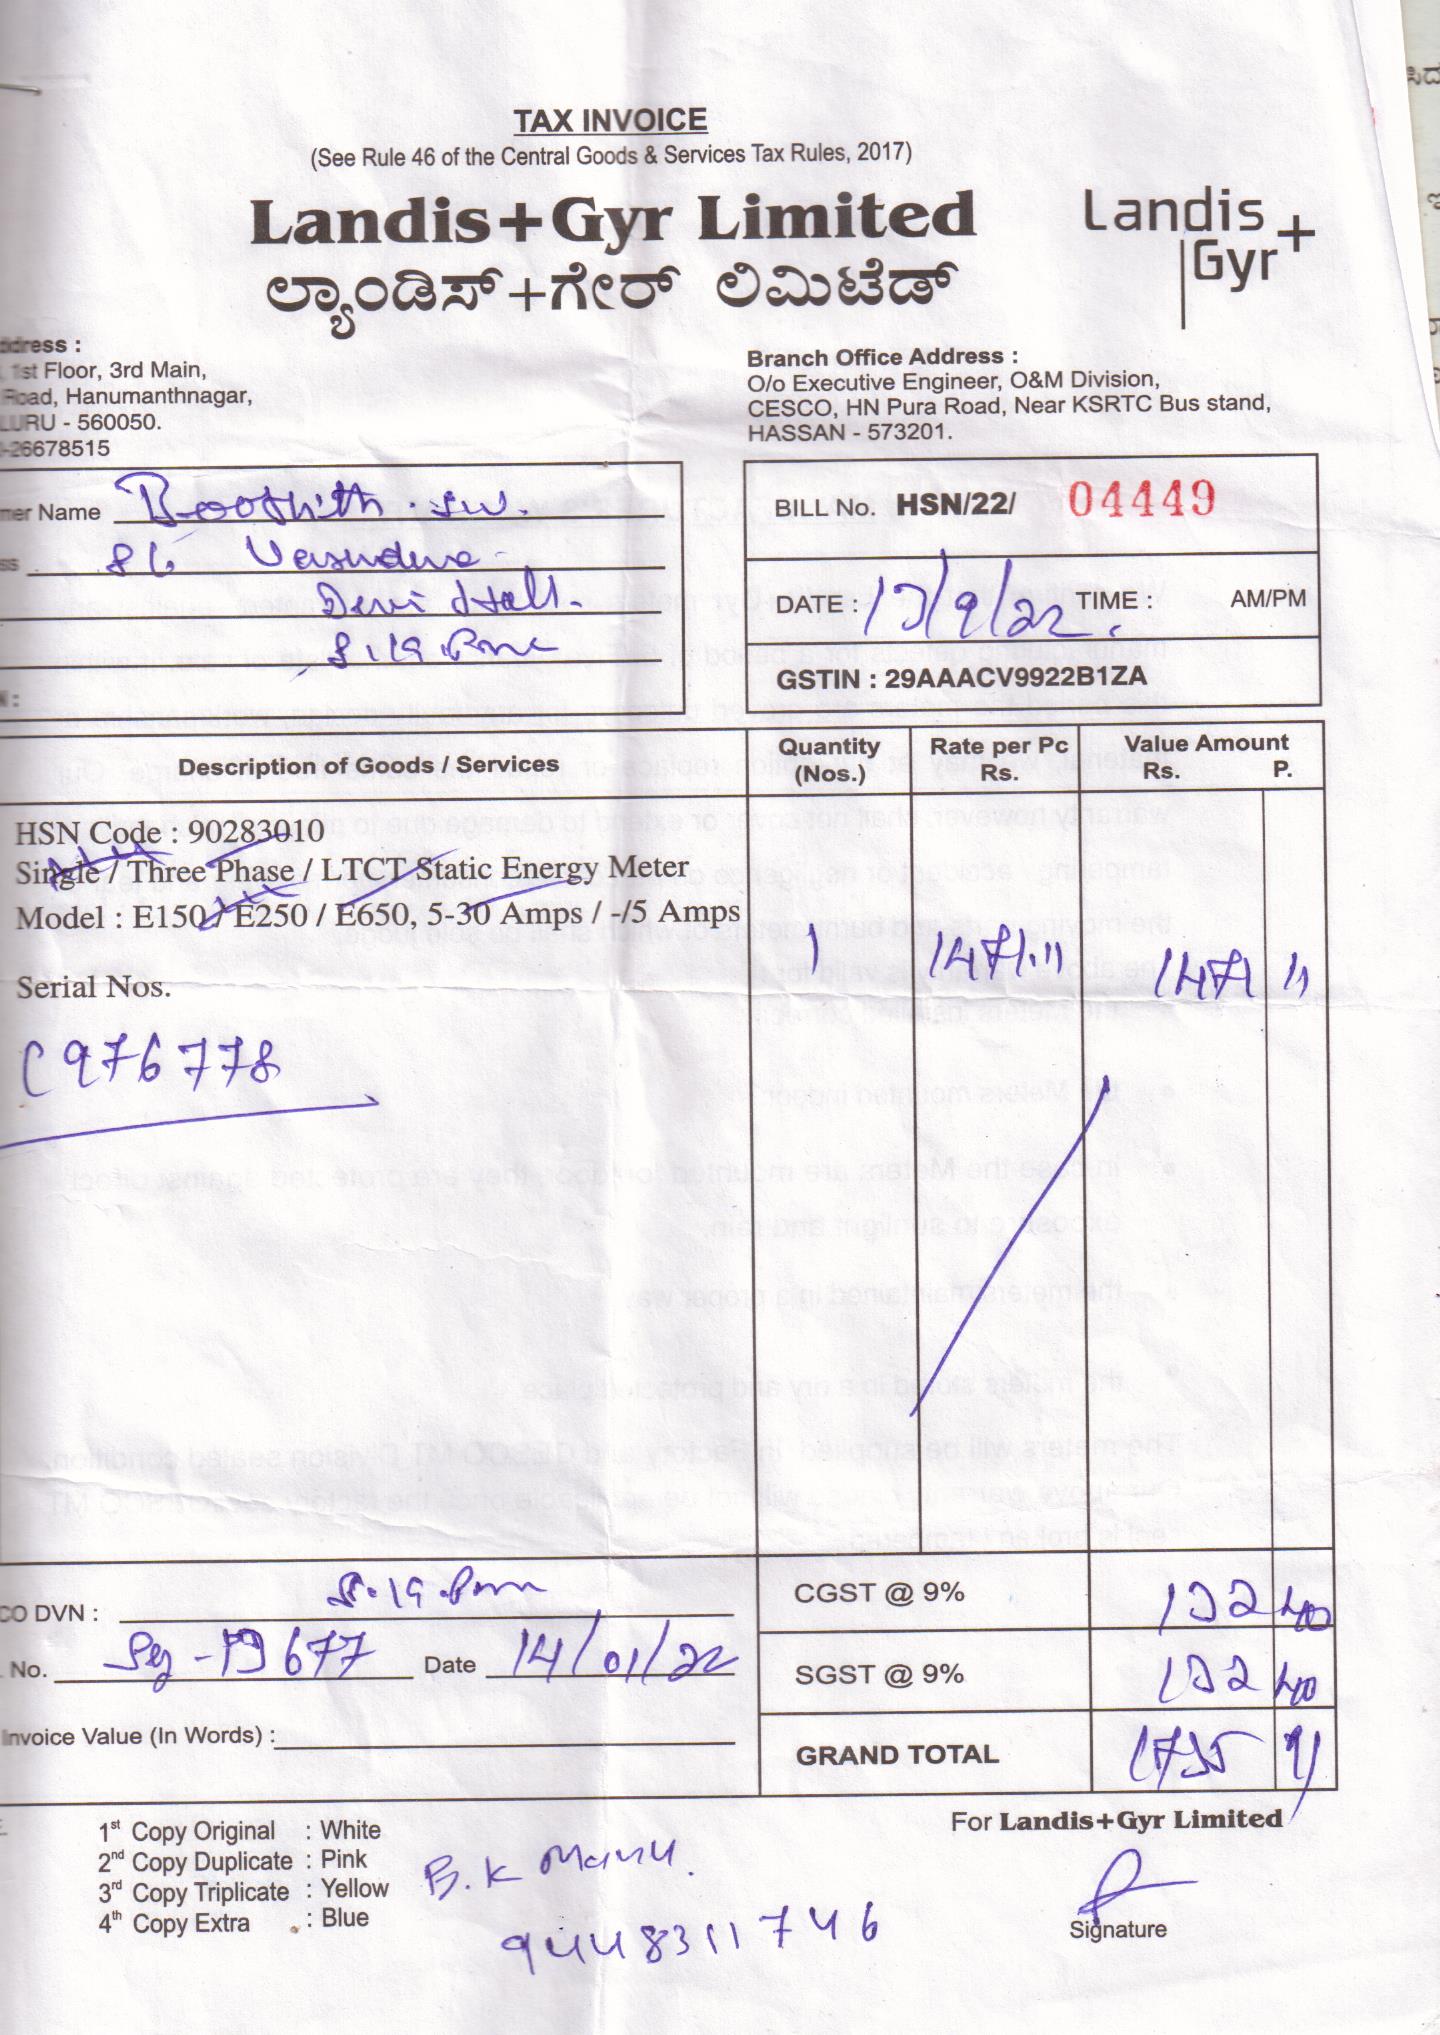 TAX INVOICE
(See Rule 46 of the Central Goods & Services Tax Rules, 2017)
Landis+Gyr Limited
ಲ್ಯಾಂಡಿಸ್+ಗೇರ್ ಲಿಮಿಟೆಡ್
Landis
Gyr+
ddress :
1st Floor, 3rd Main,
Road, Hanumanthnagar,
LURU - 560050.
-26678515
Branch Office Address :
O/o Executive Engineer, O&M Division,
CESCO, HN Pura Road, Near KSRTC Bus stand,
HASSAN - 573201.
mer Name
ss
Devi
BILL No. HSN/22/ 04449
DATE : 17/9/22 TIME : AM/PM
GSTIN : 29AAACV9922B1ZA
Description of Goods / Services
Quantity (Nos.)
Rate per Pc Rs.
Value Amount Rs. P.
HSN Code : 90283010
Single / Three Phase / LTCT Static Energy Meter
Model : E150 / E250 / E650, 5-30 Amps / -/5 Amps
1 1471.11 1471 11
Serial Nos.
C976778
CO DVN :
No. Date 14/01/22
Invoice Value (In Words) :
CGST @ 9% 132 40
SGST @ 9% 132 40
GRAND TOTAL 1735 91
1st Copy Original : White
2nd Copy Duplicate : Pink
3rd Copy Triplicate : Yellow
4th Copy Extra : Blue
B.K Manu.
9448311746
For Landis+Gyr Limited
Signature